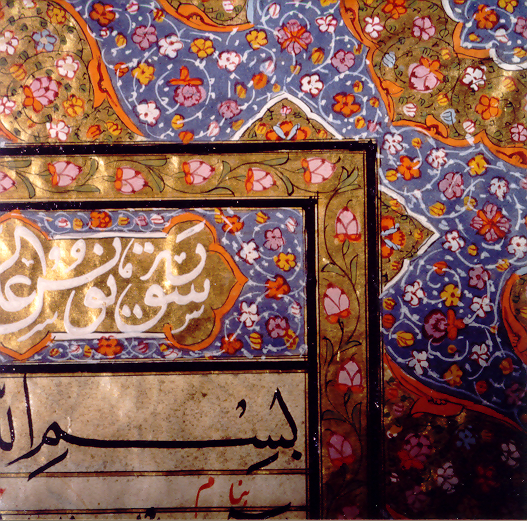 سورة يوسف
بسم الله
بنام